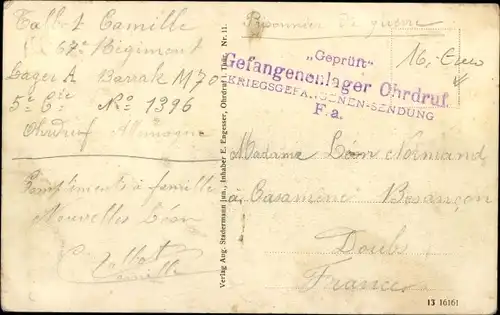 Talbot Camille
67e Régiment
Lager A Barrak M 70
5e Cie No 1396
Ohrdruf Allemagne
Compliments à famille
Nouvelles Léon
Talbot
Camille
Verlag Aug. Stadermann jun., Inhaber E. Engesser, Ohrdruf i. Thür. Nr. 11.
Prisonnier De guerre
16,- Euro
„Geprüft“
Gefangenenlager Ohrdruf.
KRIEGSGEFANGENEN-SENDUNG
F. a.
Madame Léon Normand
à Casamène Besançon
Doubs
France
13 16161